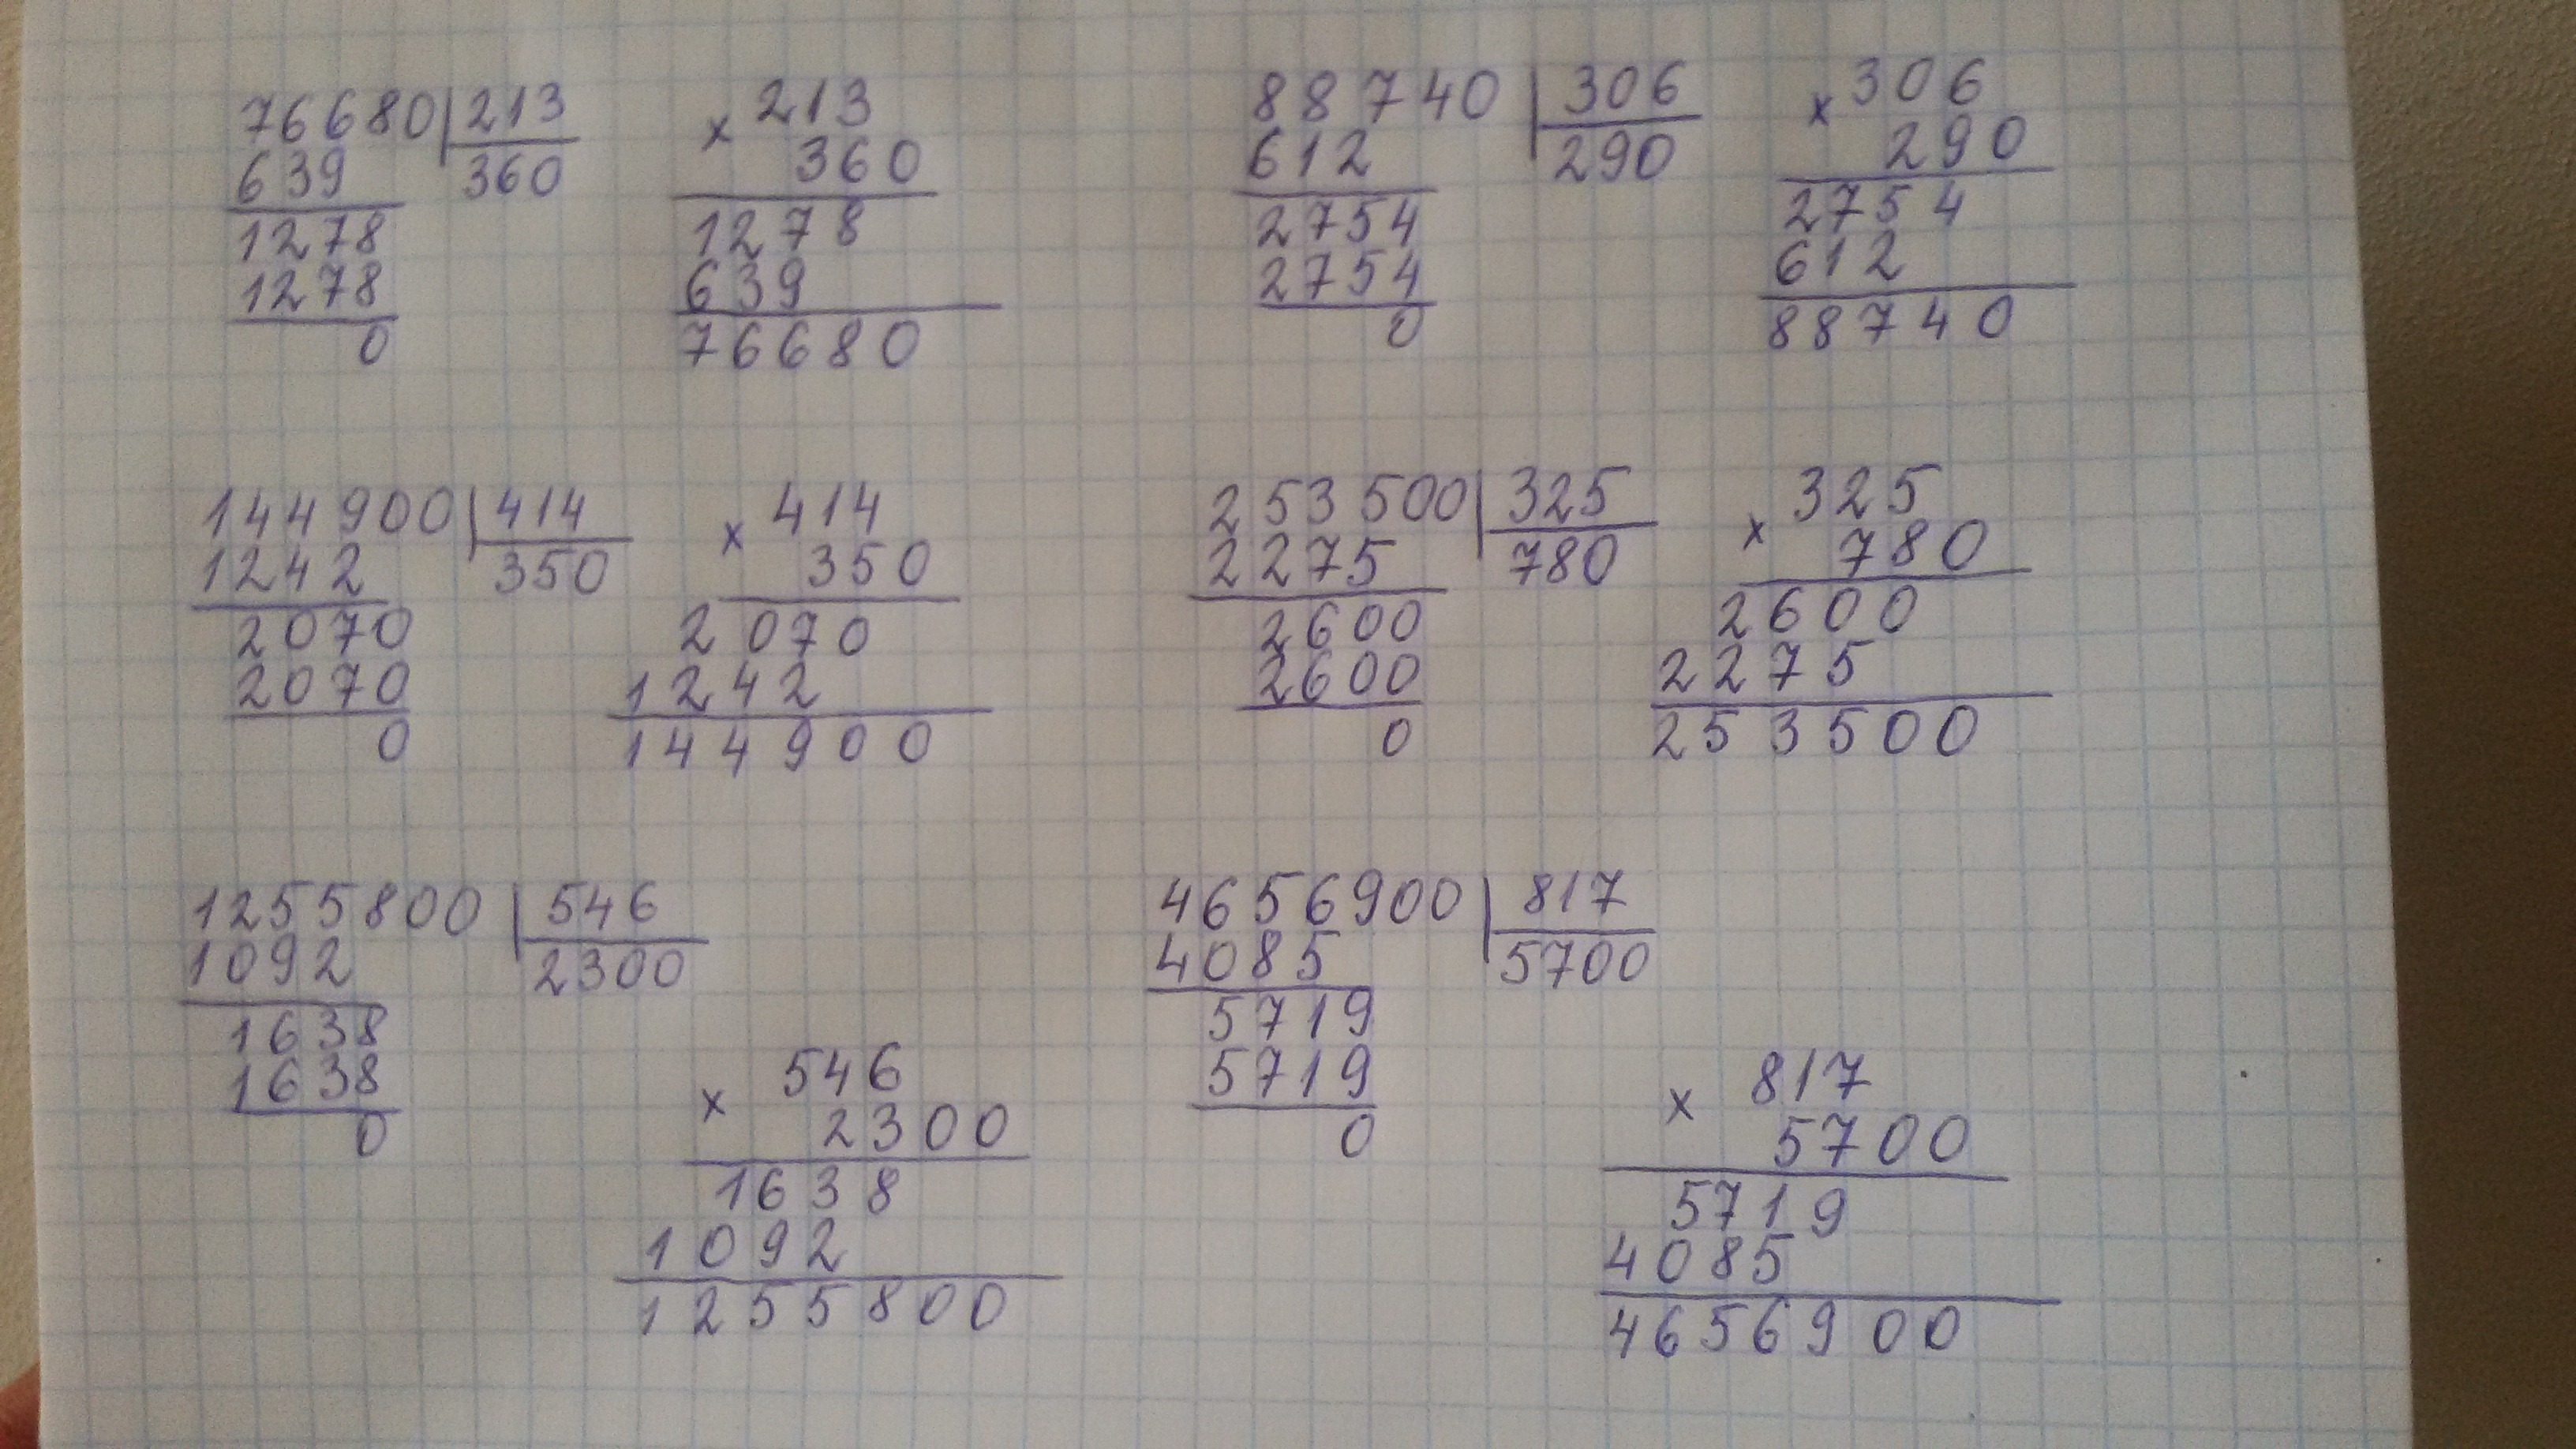 76680 213
639 360
1278
1278
0
× 213
360
1278
639
76680
88740 306
612 290
2754
2754
0
× 306
290
2754
612
88740
144900 414
1242 350
2070
2070
0
× 414
350
2070
1242
144900
253500 325
2275 780
2600
2600
0
× 325
780
2600
2275
253500
1255800 546
1092 2300
1638
1638
0
× 546
2300
1638
1092
1255800
4656900 817
4085 5700
5719
5719
0
× 817
5700
5719
4085
4656900